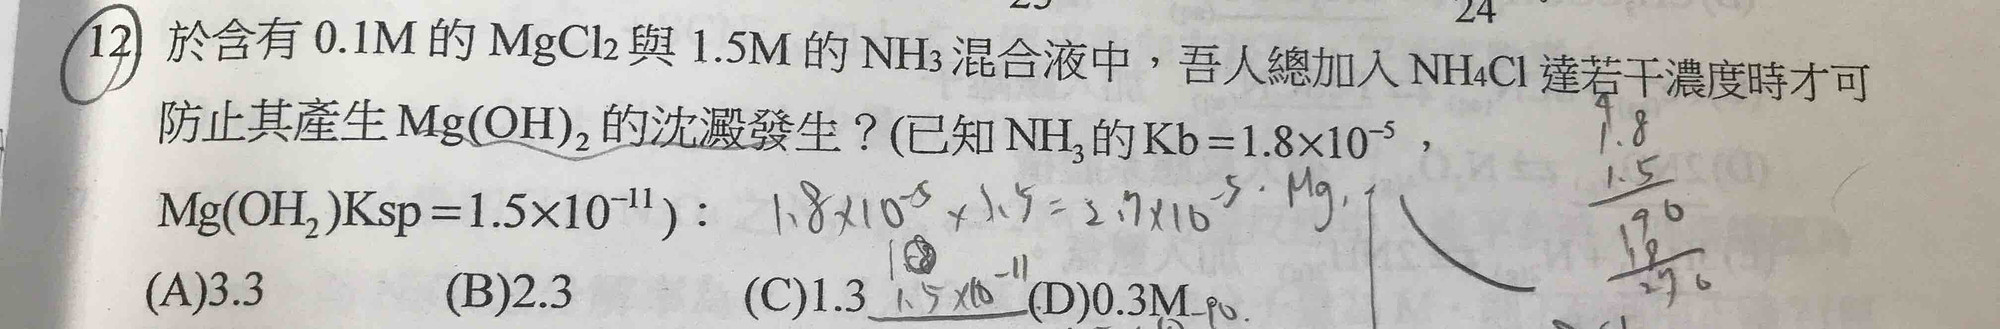 24
12 於含有 0.1M 的 MgCl2 與 1.5M 的 NH3 混合液中，吾人總加入 NH4Cl 達若干濃度時才可
防止其產生 Mg(OH)₂ 的沈澱發生？(已知 NH₃ 的 Kb=1.8×10⁻⁵，
1.8
1.5
Mg(OH₂)Ksp=1.5×10⁻¹¹)： 1.8×10⁻⁵×1.5=2.7×10⁻⁵. Mg.
190
18
270
(A)3.3 (B)2.3 (C)1.3 1.5×10⁻¹¹ (D)0.3M